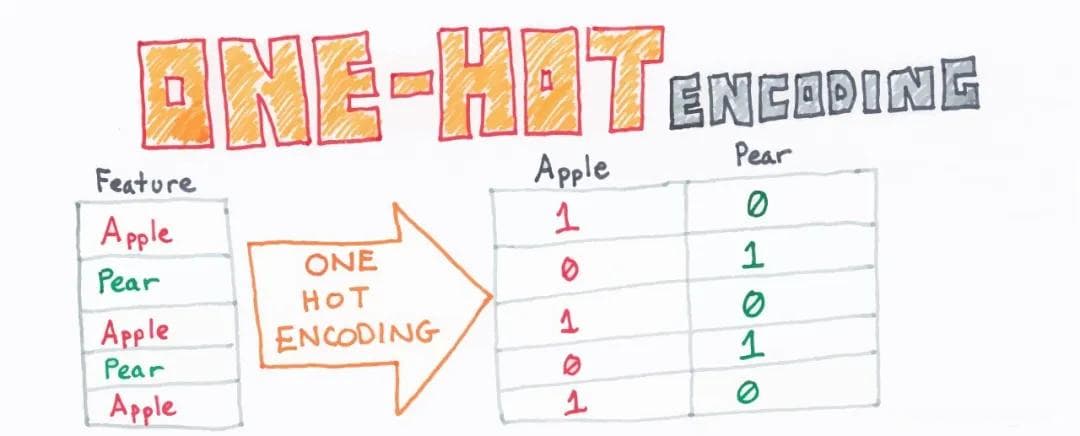 ONE-HOT ENCODING
Feature
Apple
Pear
Apple
Pear
Apple
ONE
HOT
ENCODING
Apple Pear
1 0
0 1
1 0
0 1
1 0